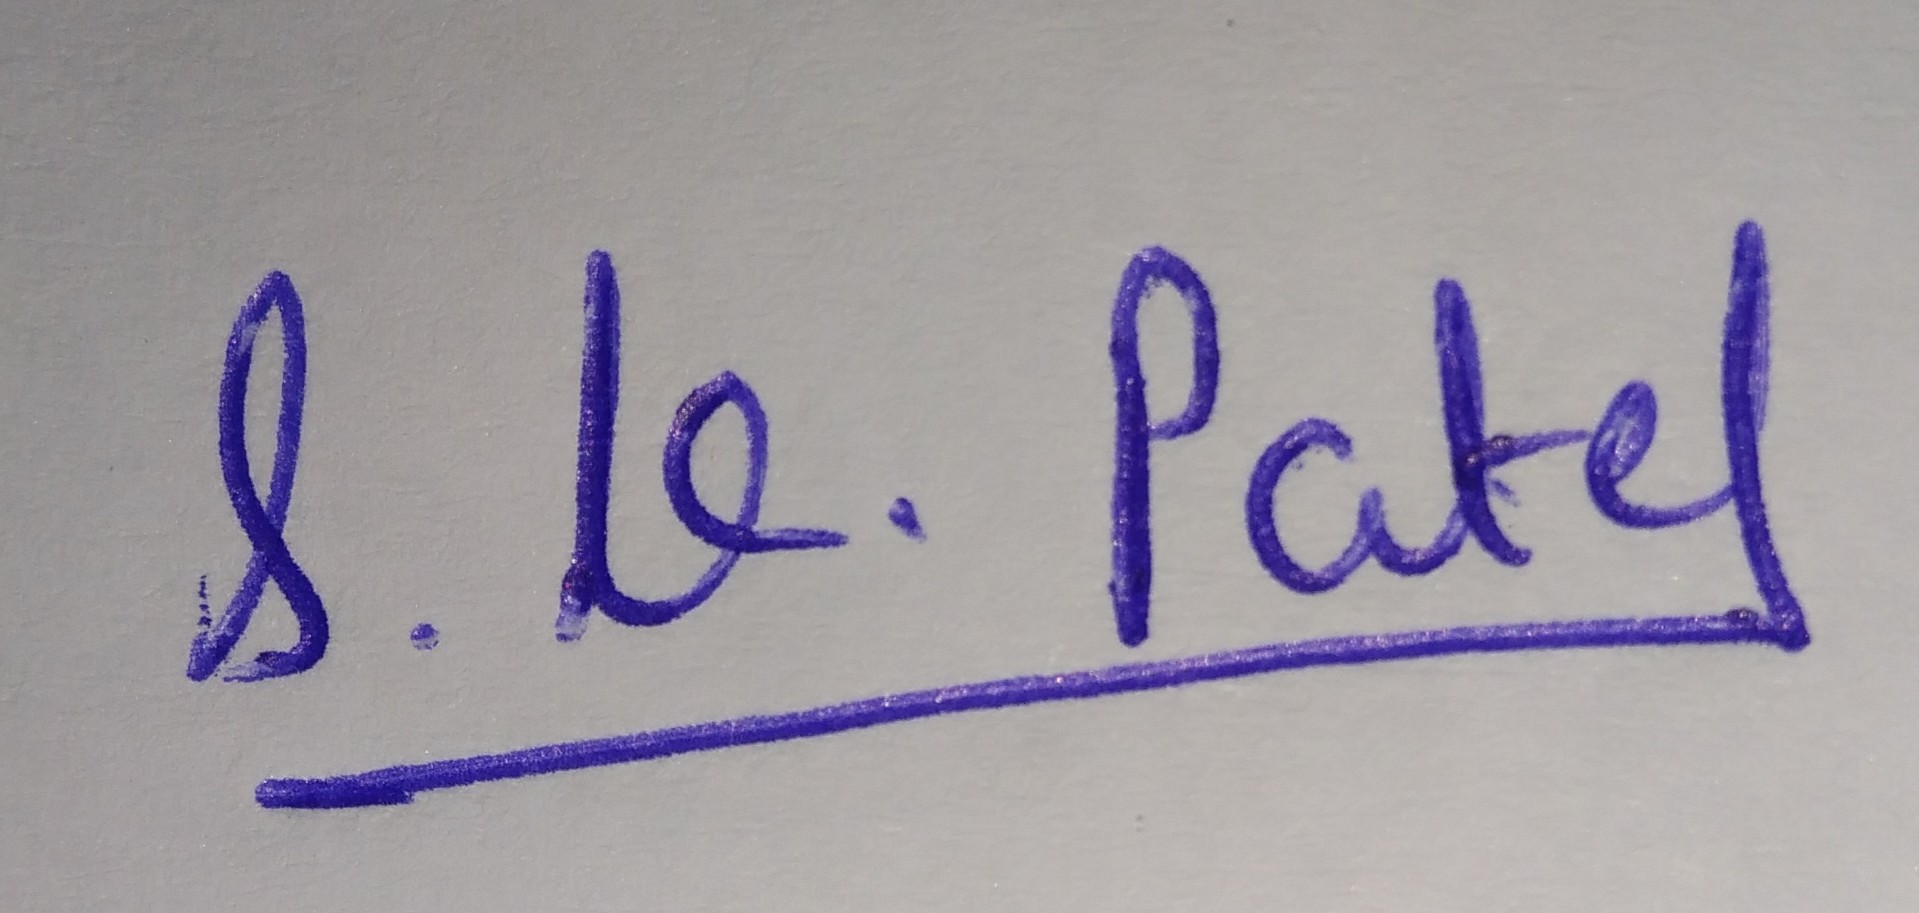 S. K. Patel